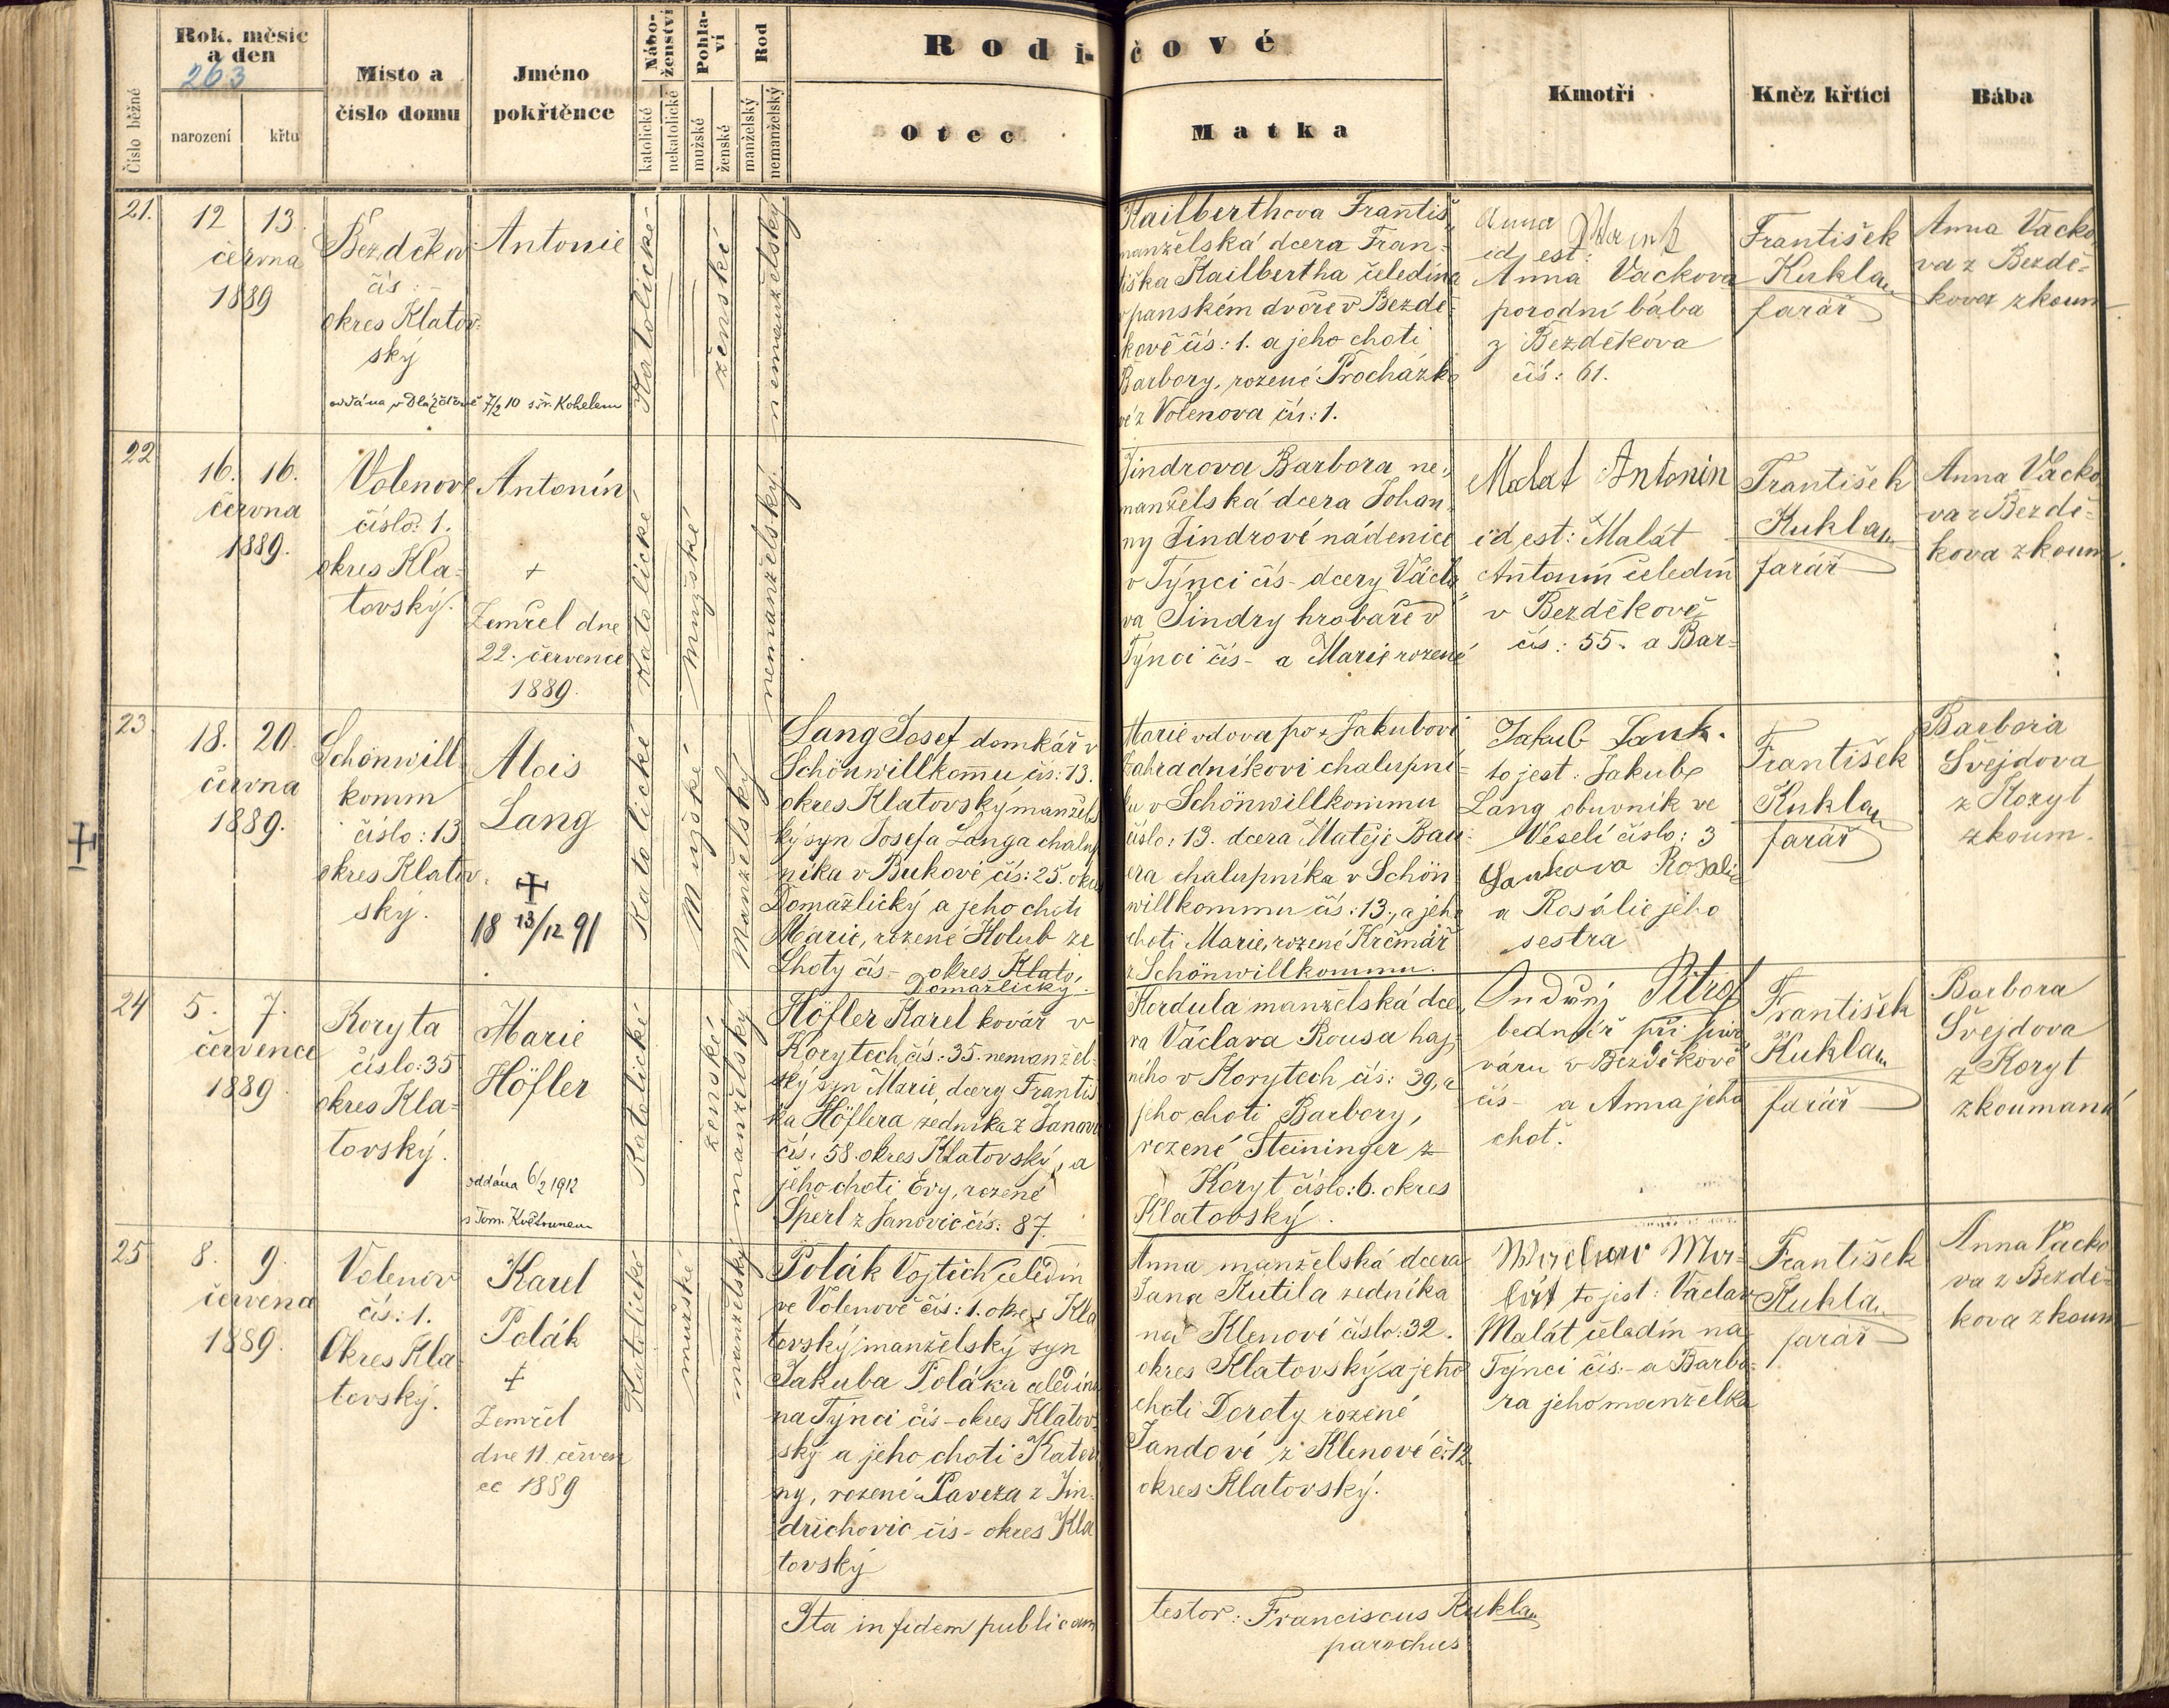 Rok. měsíc
a den
263
narození
křtu
Číslo běžné
Místo a
číslo domu
Jméno
pokřtěnce
Nábo-
ženství
katolické
nekatolické
Pohla-
ví
mužské
ženské
Rod
manželský
nemanželský
Rodi-
čové
Otec
Matka
Kmotři
Kněz křtící
Bába
21.
12 13.
června
1889
Bezděkov
čís: –
okres Klatov-
ský
oddána v Dlažďově 7/2 10 s Fr. Kohelem
Antonie
Katolické
ženské
nemanželský
Kailberthova Františ„
manželská dcera Fran-
tiška Kailbertha čeledína
v panském dvoře v Bezdě-
kově čís: 1. a jeho choti
Barbory, rozené Procházko
vé z Volenova čís: 1.
Anna
id est:
Anna Vackova
porodní bába
z Bezděkova
čís: 61.
František
Kukla
farář
Anna Vacko
va z Bezdě-
kova zkoum
22
16. 16.
června
1889.
Volenov
číslo: 1.
okres Kla-
tovský.
Antonín
+
Zemřel dne
22. července
1889.
Katolické
Mužské
nemanželský.
Jindrova Barbora ne„
manželská dcera Johan„
ny Jindrové nádenice
v Týnci čís – dcery Václa
va Jindry hrobaře v
Týnci čís – a Marie rozené
Malat Antonin
id est: Malát
Antonín čeledín
v Bezděkově
čís: 55. a Bar-
František
Kukla
farář
Anna Vacko
va z Bezdě-
kova zkoum.
23
18. 20.
června
1889.
Schönwill
komm
číslo: 13
okres Klatov.
ský.
Alois
Lang
+
18 13/12 91
Katolické
Mužské
Manželský
Lang Josef domkář v
Schönwillkommu čís: 13.
okres Klatovský manžels
ký syn Josefa Langa chalup
níka v Bukové čís: 25. okres
Domažlický a jeho choti
Marie, rozené Holub ze
Lhoty čís – okres Klato,
Domažlický.
Marie vdova po + Jakubovi
Zahradníkovi chalupní-
ku v Schönwillkommu
číslo: 13. dcera Matěje Bau-
era chalupníka v Schön
willkommu čís: 13., a jeho
choti Marie, rozené Krčmář
z Schönwillkommu.
Jakub Lank.
to jest: Jakub
Lang obuvník ve
Veselí číslo: 3
Lankova Rozalie
a Rosálie jeho
sestra
František
Kukla
farář
Barbora
Švejdova
z Koryt
zkoum.
24
5. 7.
července
1889
Koryta
číslo: 35
okres Kla-
tovský.
Marie
Höfler
oddána 6/2 1912
s Tom. Květounem
Katolické
ženské
manželský
Höfler Karel kovář v
Korytech čís: 35. nemanžel-
ský syn Marie, dcery Františ
ka Höflera zedníka z Janovic
čís. 58. okres Klatovský, a
jeho choti Evy, rozené
Šperl z Janovic čís: 87.
Kordula manželská dce„
ra Václava Rousa haj„
ného v Korytech čís: 39, a
jeho choti Barbory,
rozené Steininger z
Koryt číslo: 6. okres
Klatovský.
Ondřej Pitrof
bednář při pivo
váru v Bezděkově
čís – a Anna jeho
choť.
František
Kukla
farář
Barbora
Švejdova
z Koryt
zkoumaná
25
8. 9.
července
1889.
Volenov
čís: 1.
Okres Kla-
tovský.
Karel
Polák
+
Zemřel
dne 11. červen
ce 1889
Katolické
mužské
manželský
Polák Vojtěch čeledín
ve Volenově čís: 1. okres Kla
tovský manželský syn
Jakuba Poláka čeledína
na Týnci čís – okres Klatov-
ský a jeho choti Kateři
ny, rozené Paveza z Jin-
dřichovic čís – okres Kla
tovský
Anna manželská dcera
Jana Kutila zedníka
na Klenové číslo. 32.
okres Klatovský a jeho
choti Doroty rozené
Jandové z Klenové č: 12.
okres Klatovský.
to jest: Václav
Malát čeledín na
Týnci čís. – a Barbo-
ra jeho manželka
František
Kukla
farář
Anna Vacko
va z Bezdě-
kova zkoum
Ita in fidem publicam
testor: Franciscus Kukla
parochus